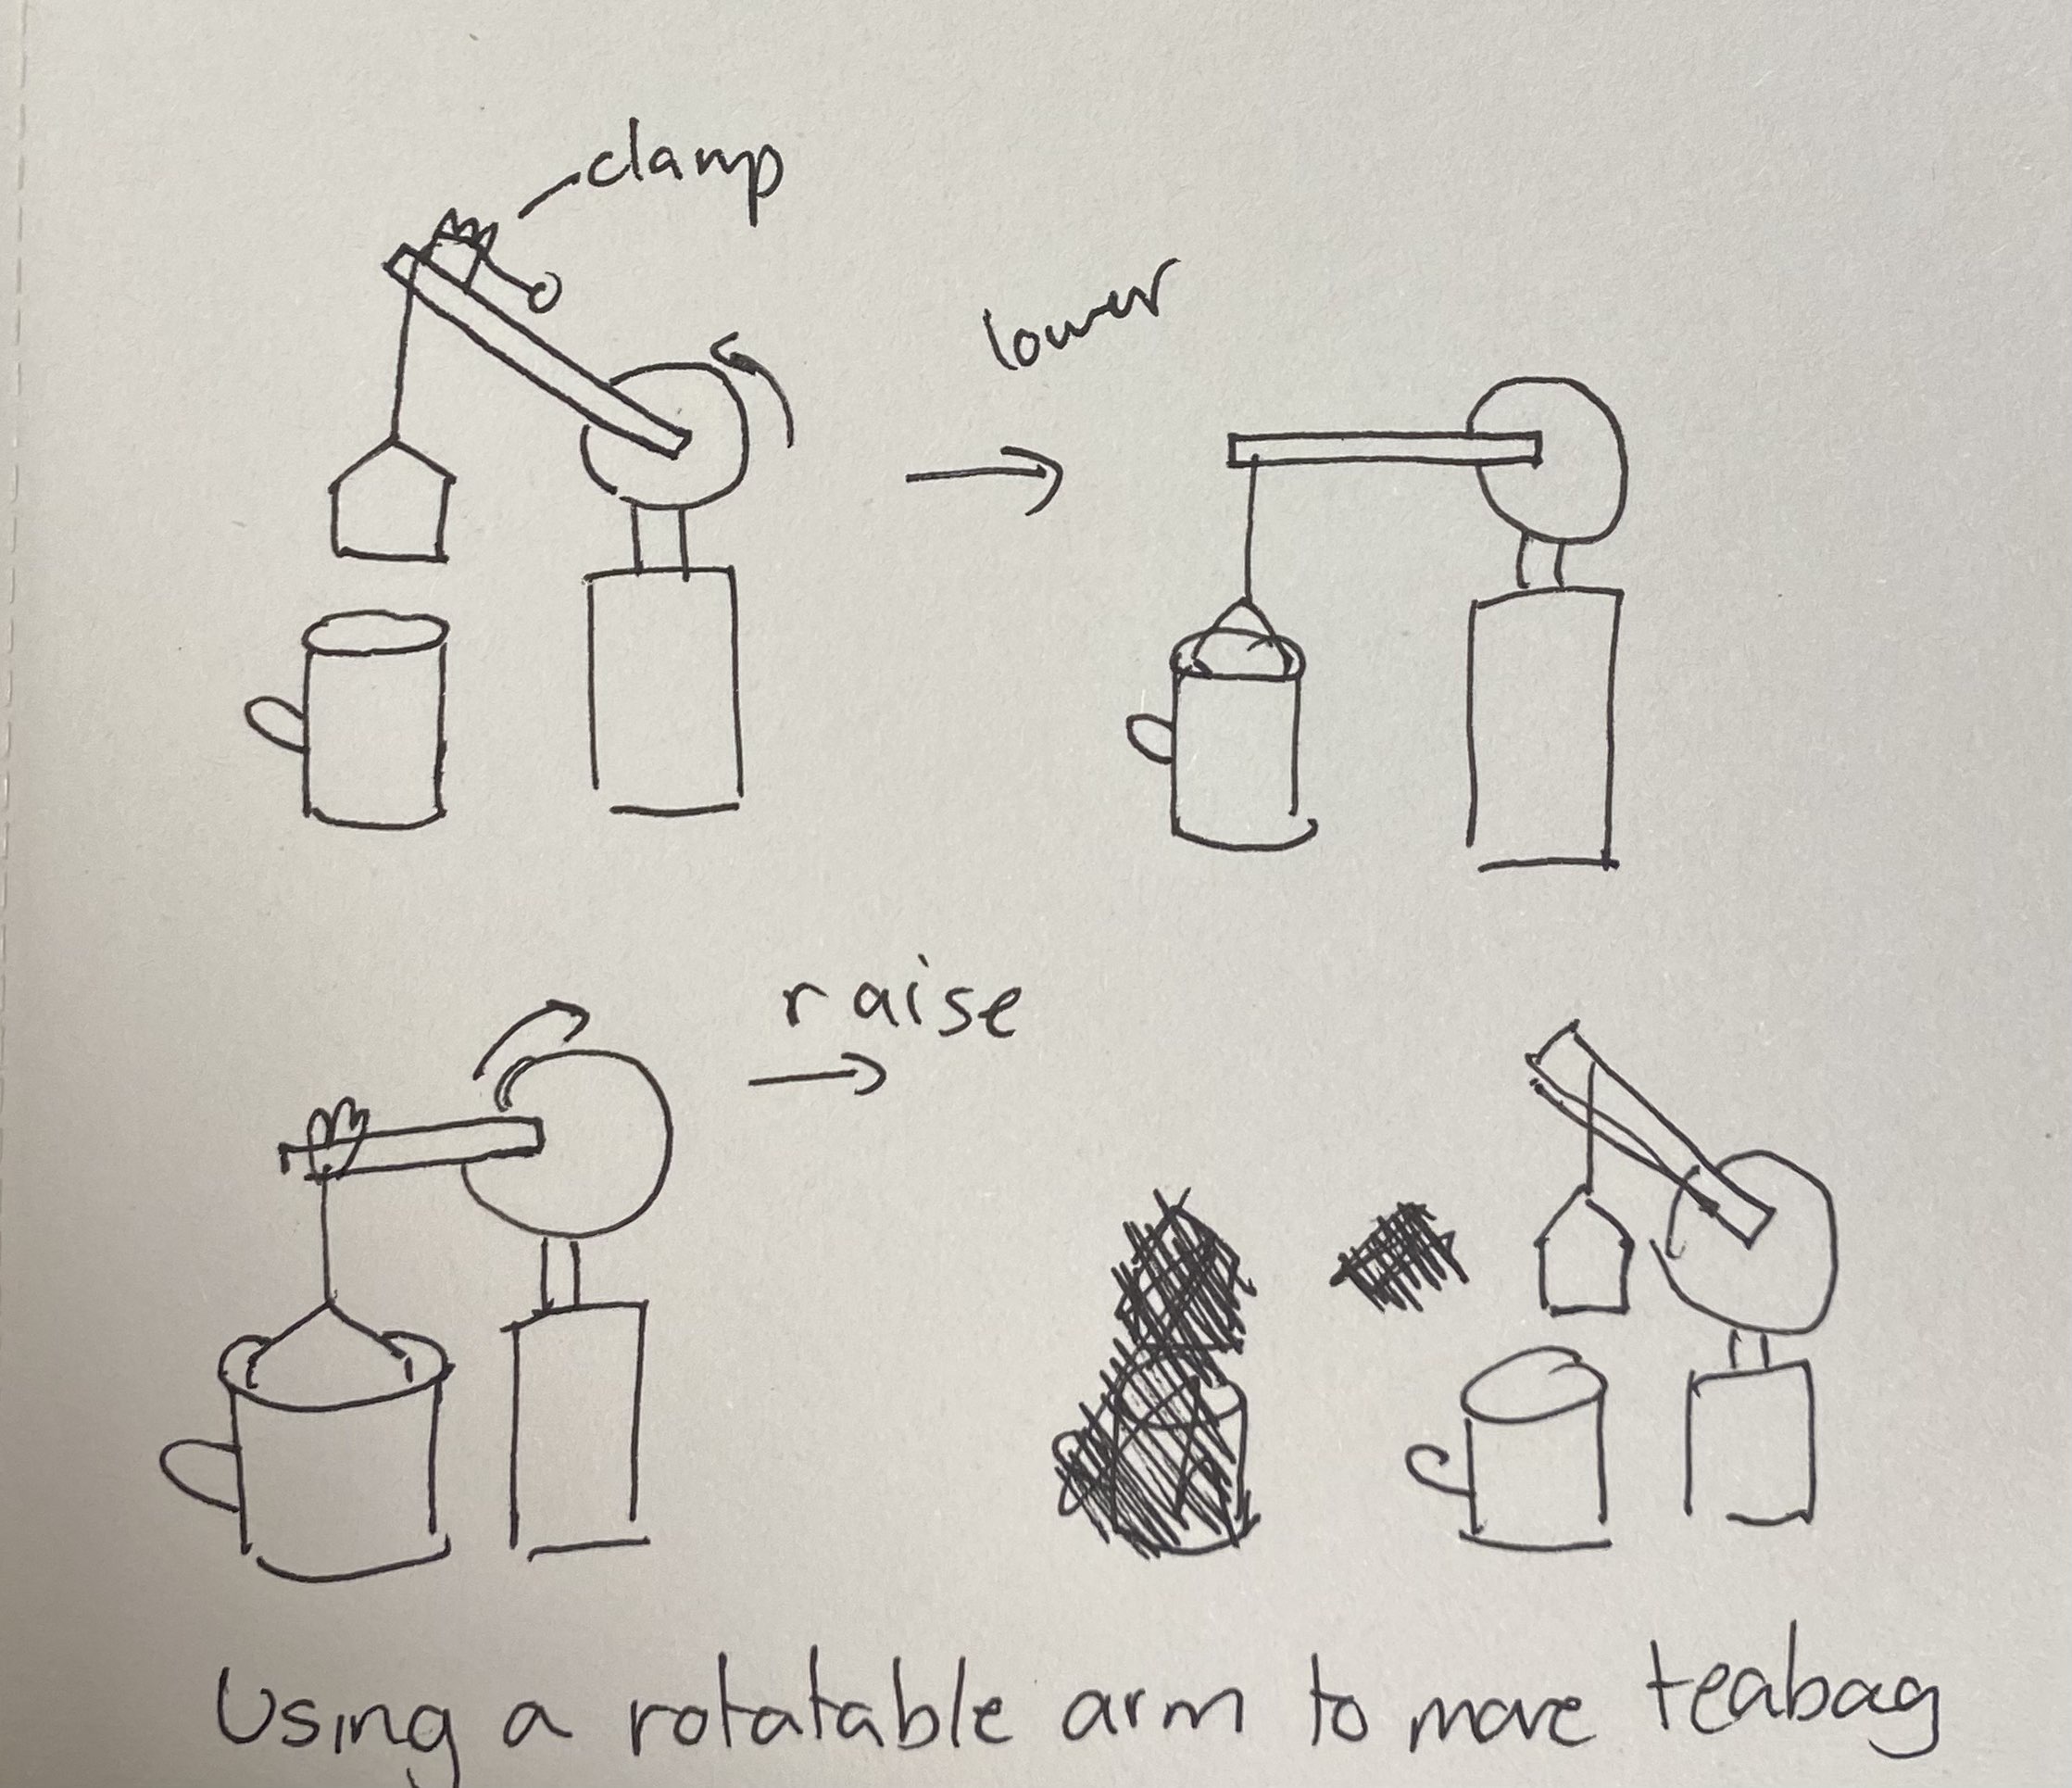 clamp
lower
raise
Using a rotatable arm to move teabag